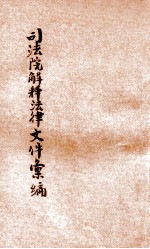 司法院解释法律文件彙编